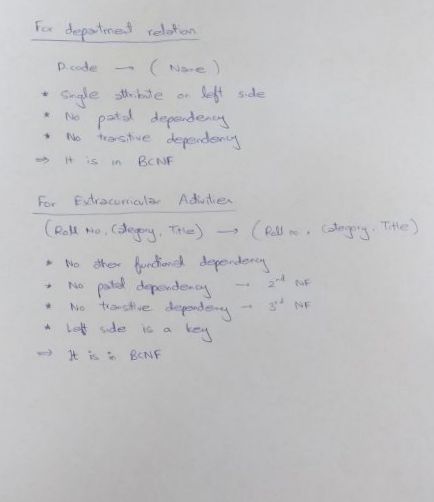 For department relation
D.code → ( Name )
* Single attribute on left side
* No patal dependency
* No transitive dependency
⇒ It is in BCNF
For Extracurricular Activities
(Roll No, Category, Title) → (Roll no, Category, Title)
* No other functional dependency
* No patal dependency - 2nd NF
* No transtive dependency - 3rd NF
* Left side is a key
⇒ It is in BCNF